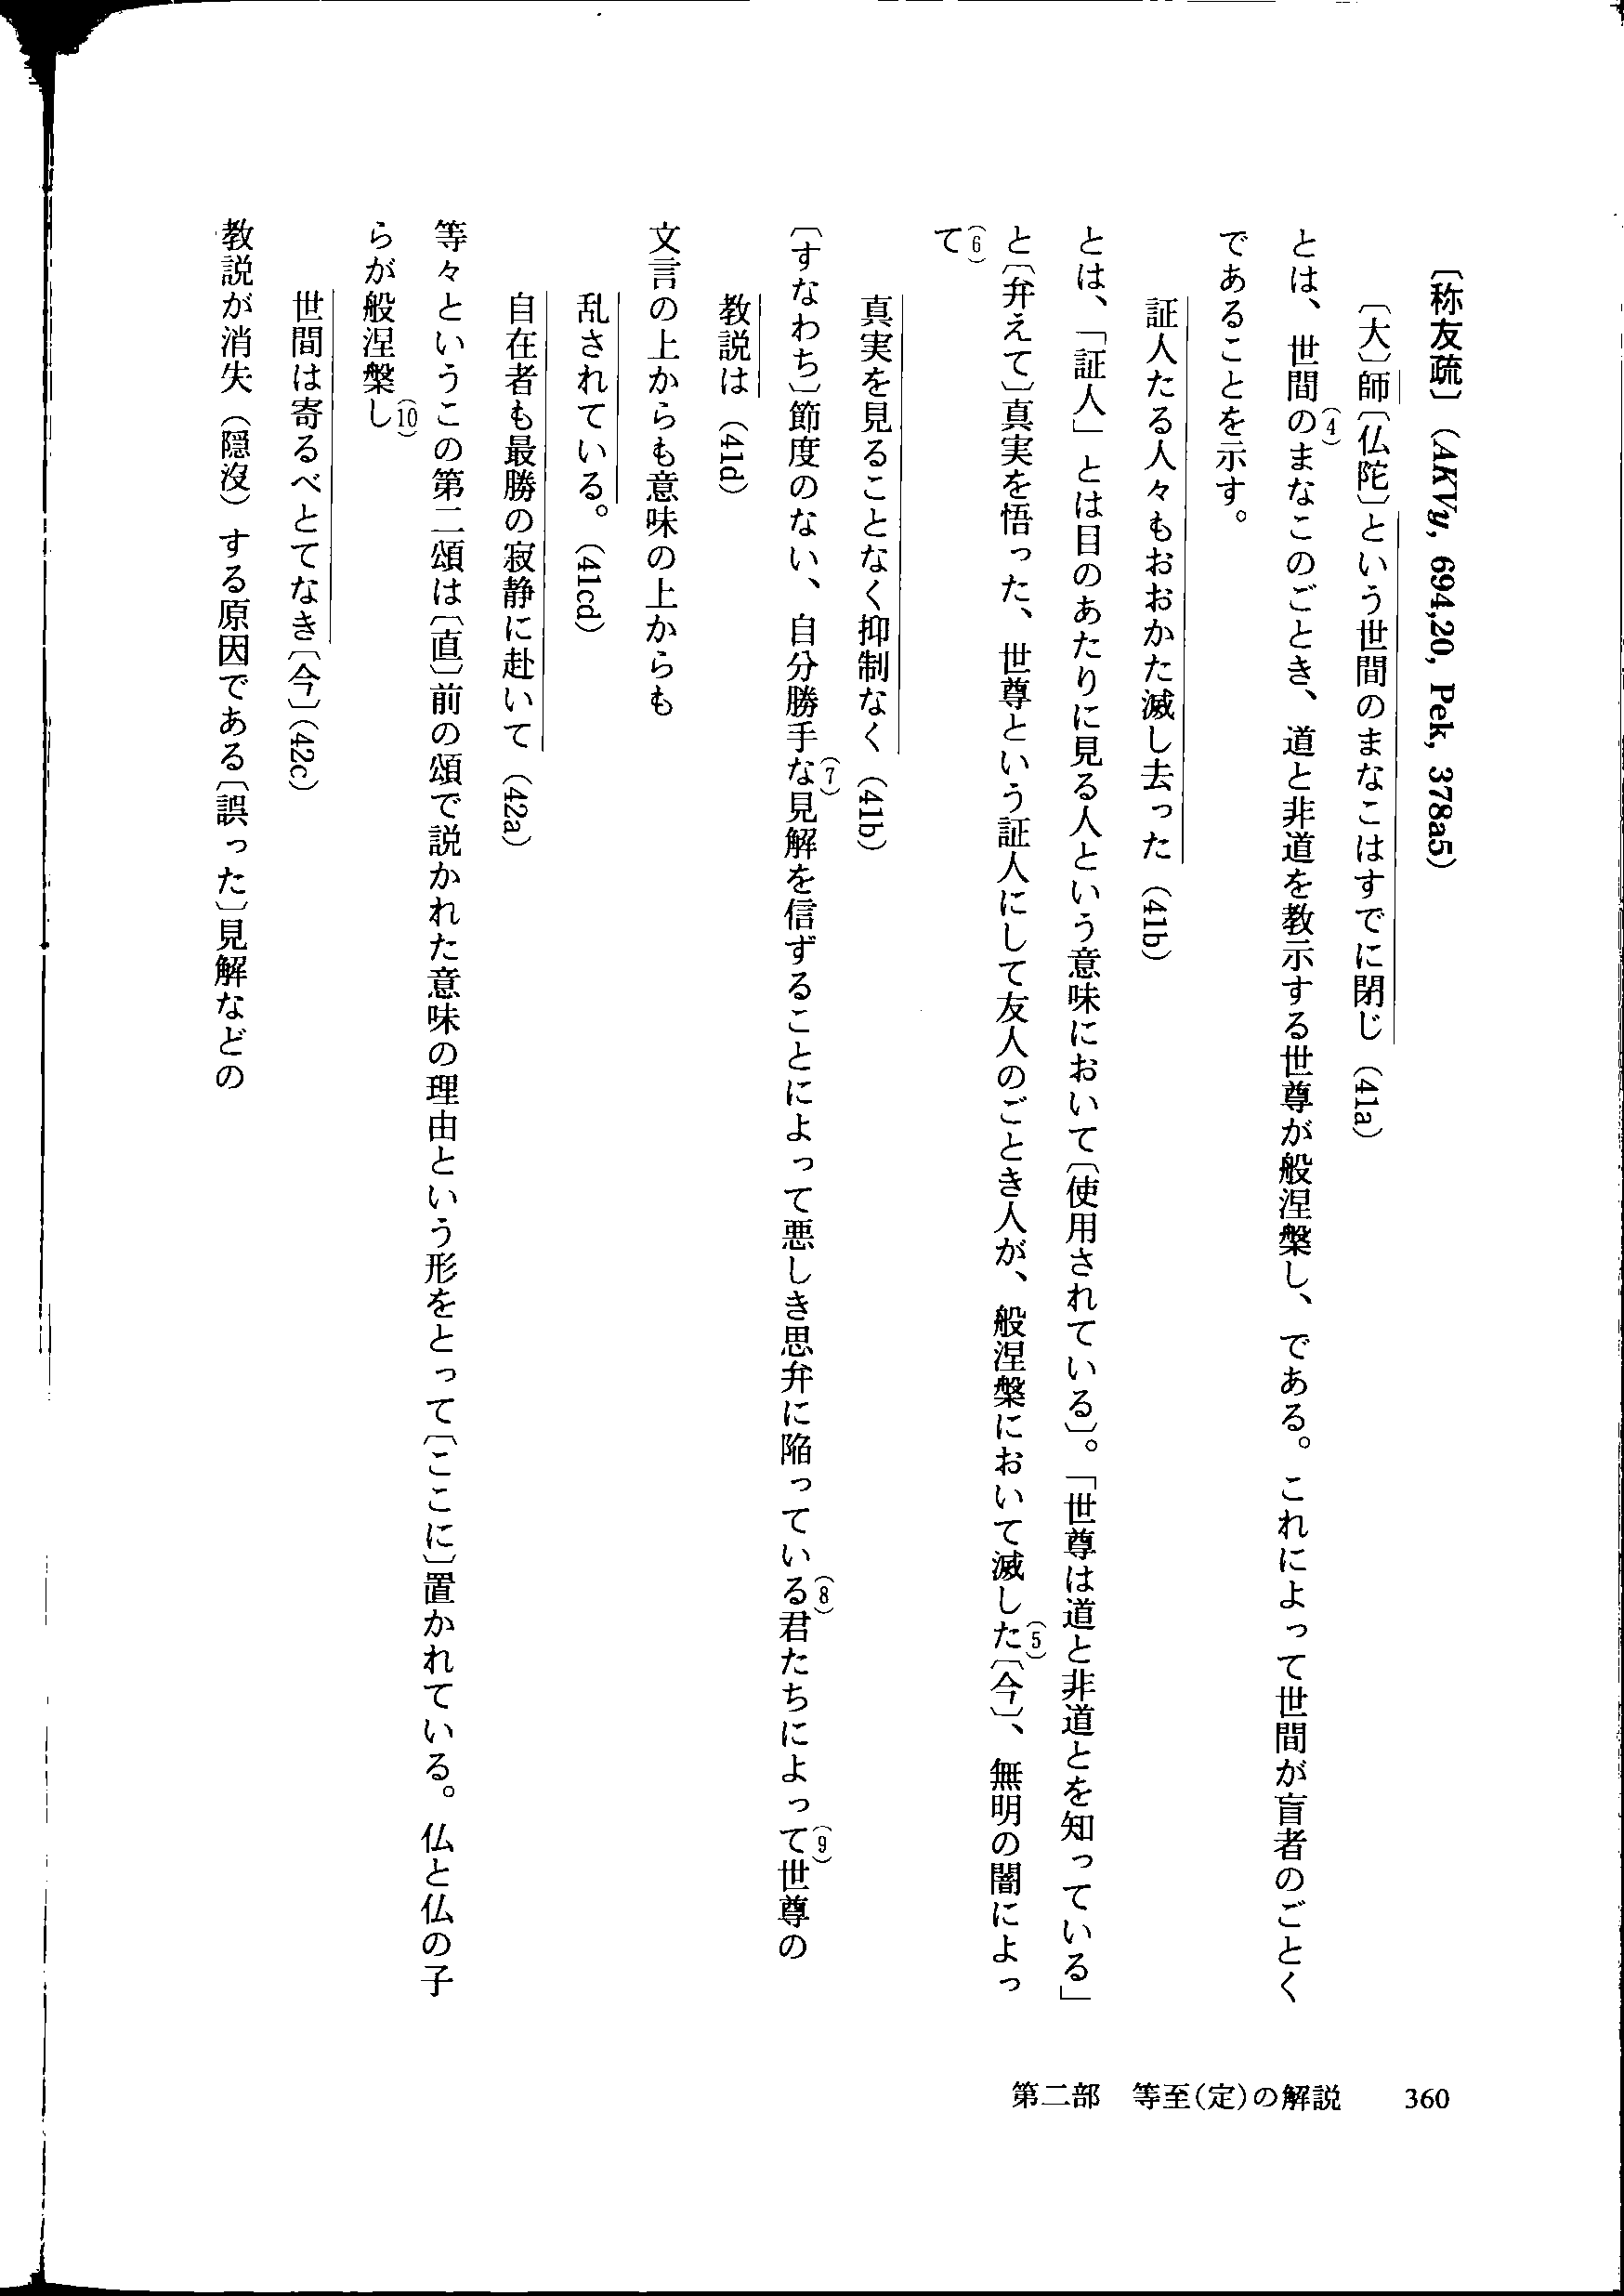 〔称友疏〕（AKVy, 694,20, Pek, 378a5）
〔大〕師〔仏陀〕という世間のまなこはすでに閉じ（41a）
とは、世間のまなこのごとき、道と非道を教示する世尊が般涅槃し、である。これによって世間が盲者のごとく
(4)
であることを示す。
証人たる人々もおおかた滅し去った（41b）
とは、「証人」とは目のあたりに見る人という意味において〔使用されている〕。「世尊は道と非道とを知っている」
と〔弁えて〕真実を悟った、世尊という証人にして友人のごとき人が、般涅槃において滅した〔今〕、無明の闇によっ
(5)
て
(6)
真実を見ることなく抑制なく（41b）
〔すなわち〕節度のない、自分勝手な見解を信ずることによって悪しき思弁に陥っている君たちによって世尊の
(7)
(8)
(9)
教説は（41d）
文言の上からも意味の上からも
乱されている。（41cd）
自在者も最勝の寂静に赴いて（42a）
等々というこの第二頌は〔直〕前の頌で説かれた意味の理由という形をとって〔ここに〕置かれている。仏と仏の子
らが般涅槃し
(10)
世間は寄るべとてなき〔今〕（42c）
教説が消失（隠没）する原因である〔誤った〕見解などの
第二部　等至(定)の解説　360